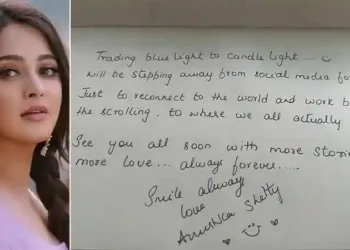 Trading blue light to candle light....
will be stepping away from social media for
Just to reconnect to the world and work b
the scrolling, to where we all actually
See you all soon with more stories
more love... always forever....
Smile always
love
Anushka Shetty